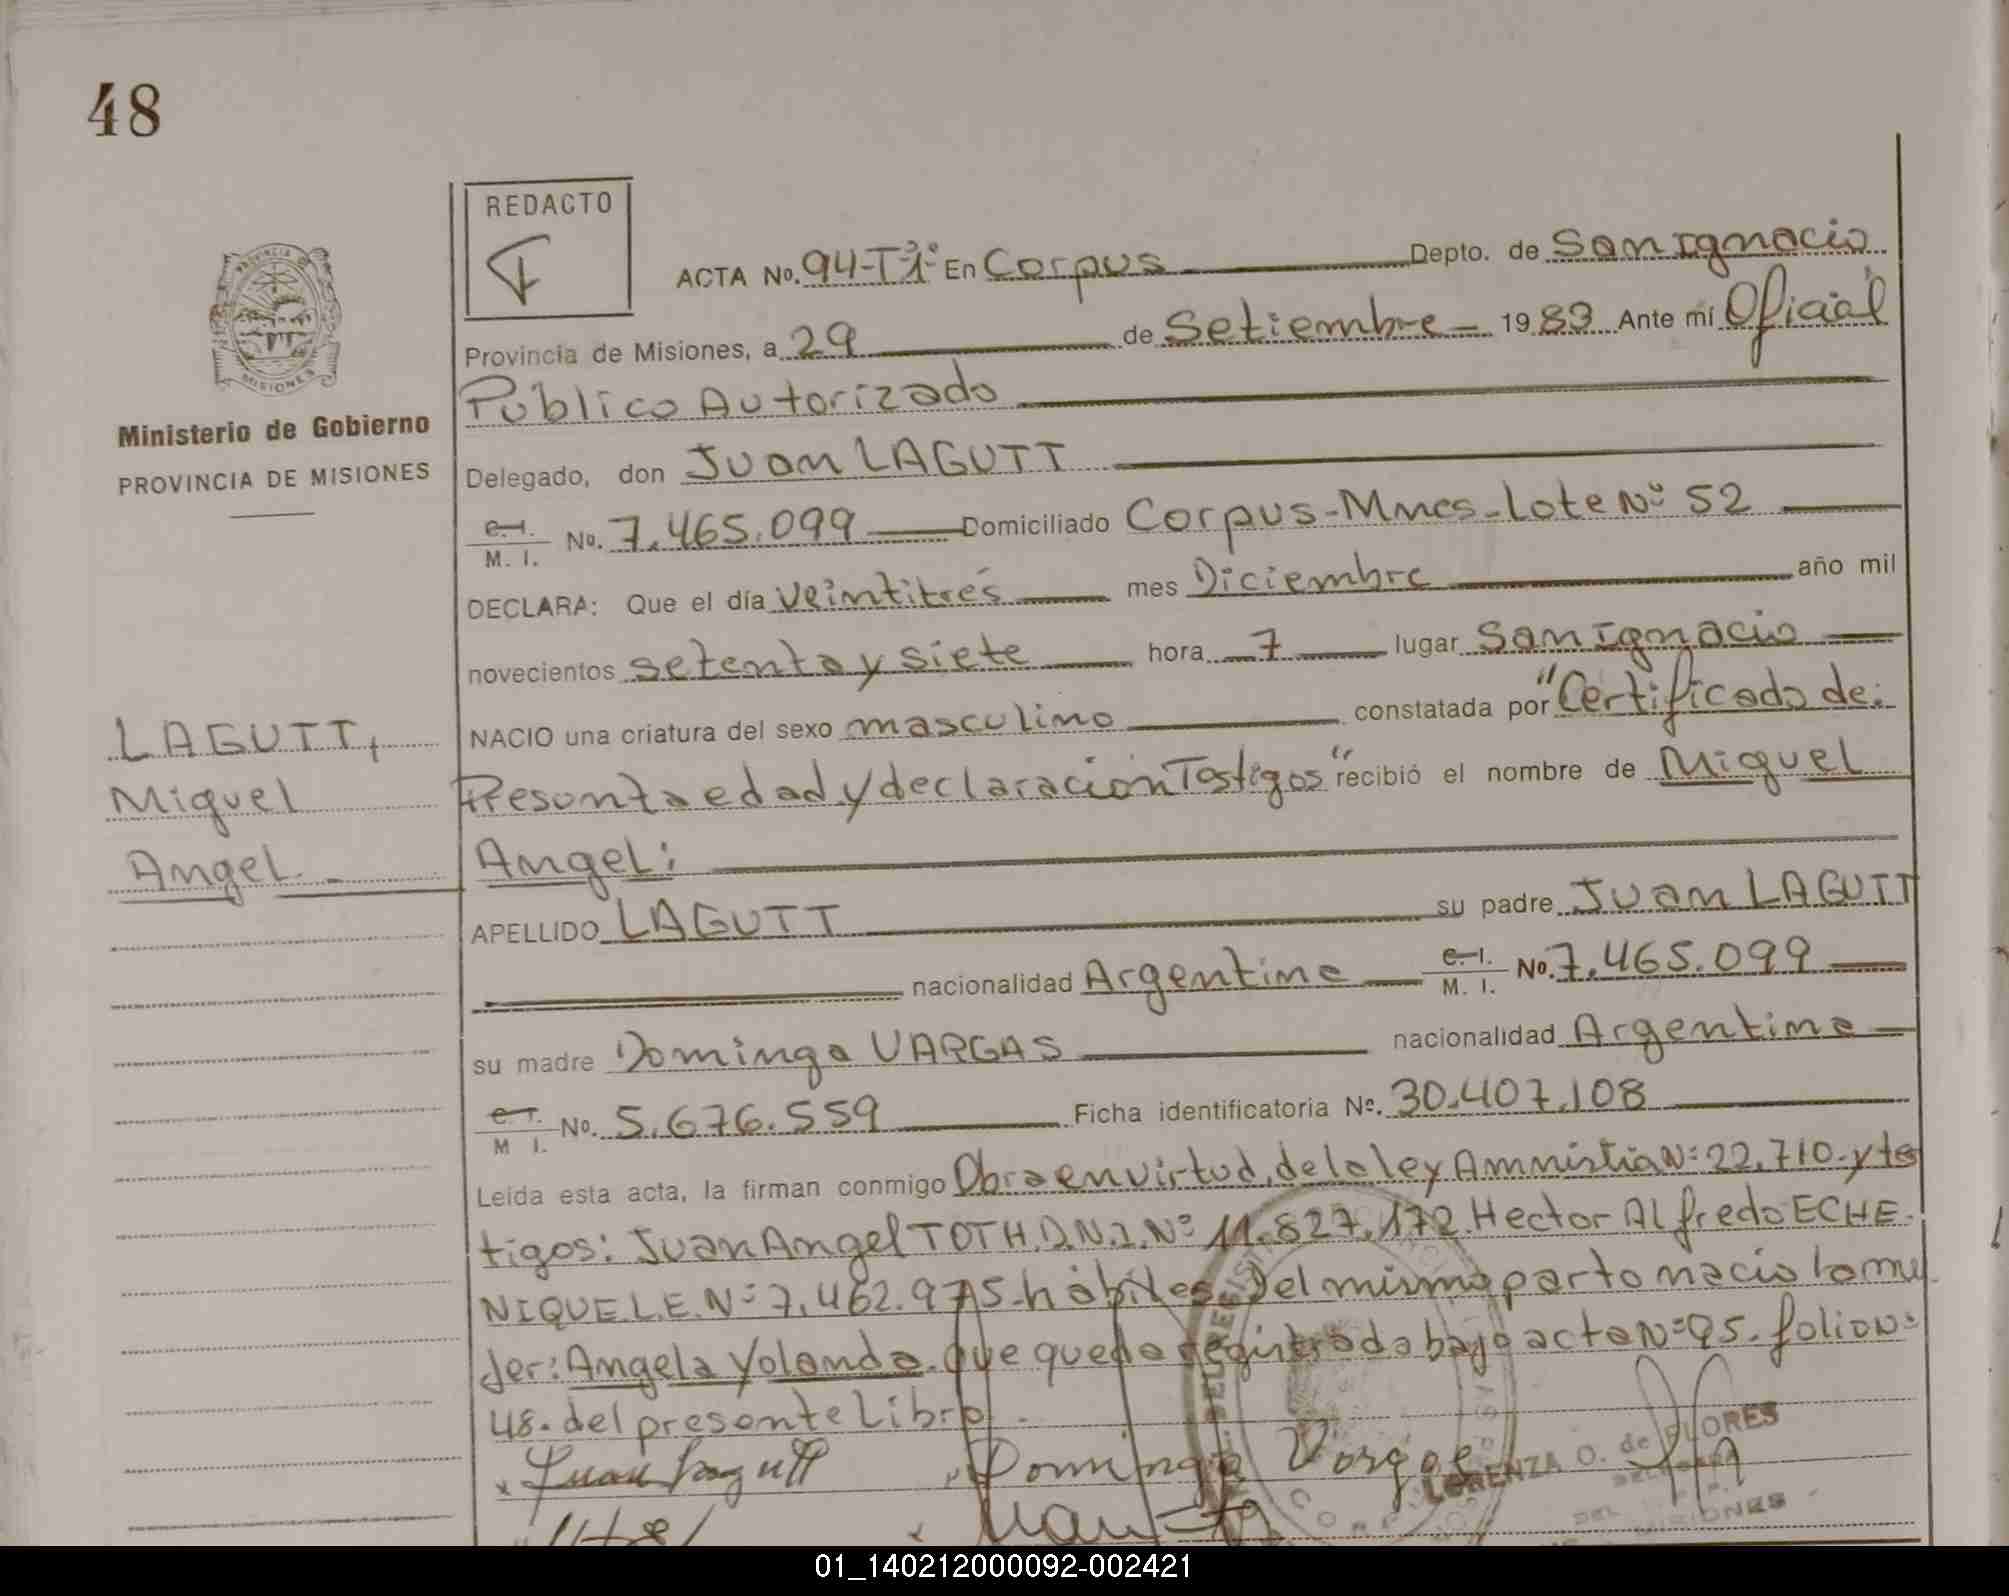 48
REDACTO
PROVINCIA DE
MISIONES
Ministerio de Gobierno
PROVINCIA DE MISIONES
ACTA No. 94-Tº1º En Corpus Depto. de San Ignacio
Provincia de Misiones, a 29 de Setiembre 1983 Ante mí Oficial
Público Autorizado
Delegado, don Juan LAGUTT
C. I. M. I. No. 7.465.099 Domiciliado Corpus-Mnes-Lote Nº 52
DECLARA: Que el día veintitrés mes Diciembre año mil
novecientos setenta y siete hora 7 lugar San Ignacio
NACIO una criatura del sexo masculino constatada por "Certificado de:
Presunta edad y declaración Testigos" recibió el nombre de Miguel
Angel:
LAGUTT,
Miguel
Angel
APELLIDO LAGUTT su padre Juan LAGUTT
nacionalidad Argentina C. I. M. I. No. 7.465.099
su madre Dominga VARGAS nacionalidad Argentina
C. I. M I. No. 5.676.559 Ficha identificatoria Nº. 30.407.108
Leída esta acta, la firman conmigo Obra en virtud, de la ley Amnistía Nº 22.710. y tes
tigos: Juan Angel TOTH. D.N.I. Nº 11.827.172. Hector Alfredo ECHE
NIQUE L.E. Nº 7.462.975. hábiles. Del mismo parto nació la mu
jer: Angela Yolanda. que queda registrada bajo acta Nº 95. folio Nº
48. del presente Libro.
Juan Lagutt Dominga Vargas
LORENZA O. de FLORES
DELEGADA
MISIONES
01_140212000092-002421